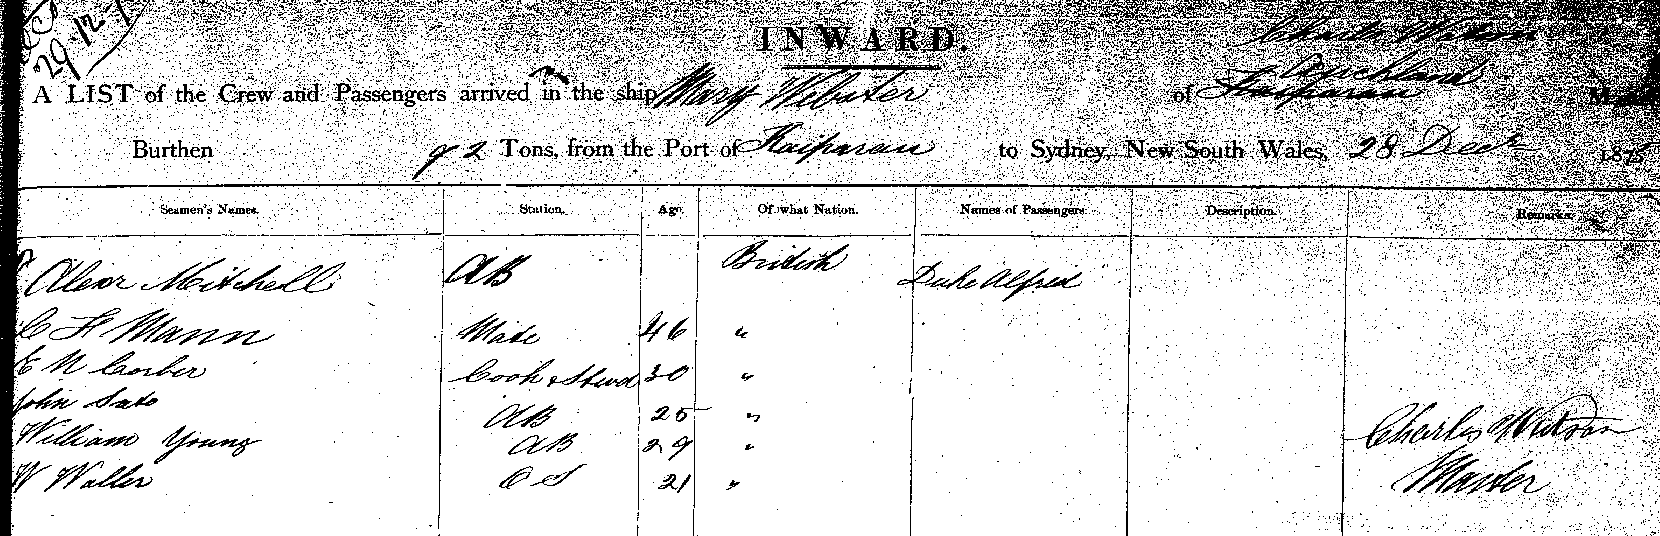 29-12-7
INWARD.
Charles Watson
Auckland
A LIST of the Crew and Passengers arrived in the ship Mary Webster of Kaiparau
Burthen 92 Tons, from the Port of Kaiparau to Sydney, New South Wales, 28 Decr 1875
Seamen's Names. Station. Age. Of what Nation. Names of Passengers. Description. Remarks.
Alexr Mitchell AB British Duke Alfred
C H Mann Mate 46 "
E N Corber Cook & Stwd 30 "
John Sato AB 25 "
William Young AB 29 " Charles Watson
W Waller OS 21 " Master